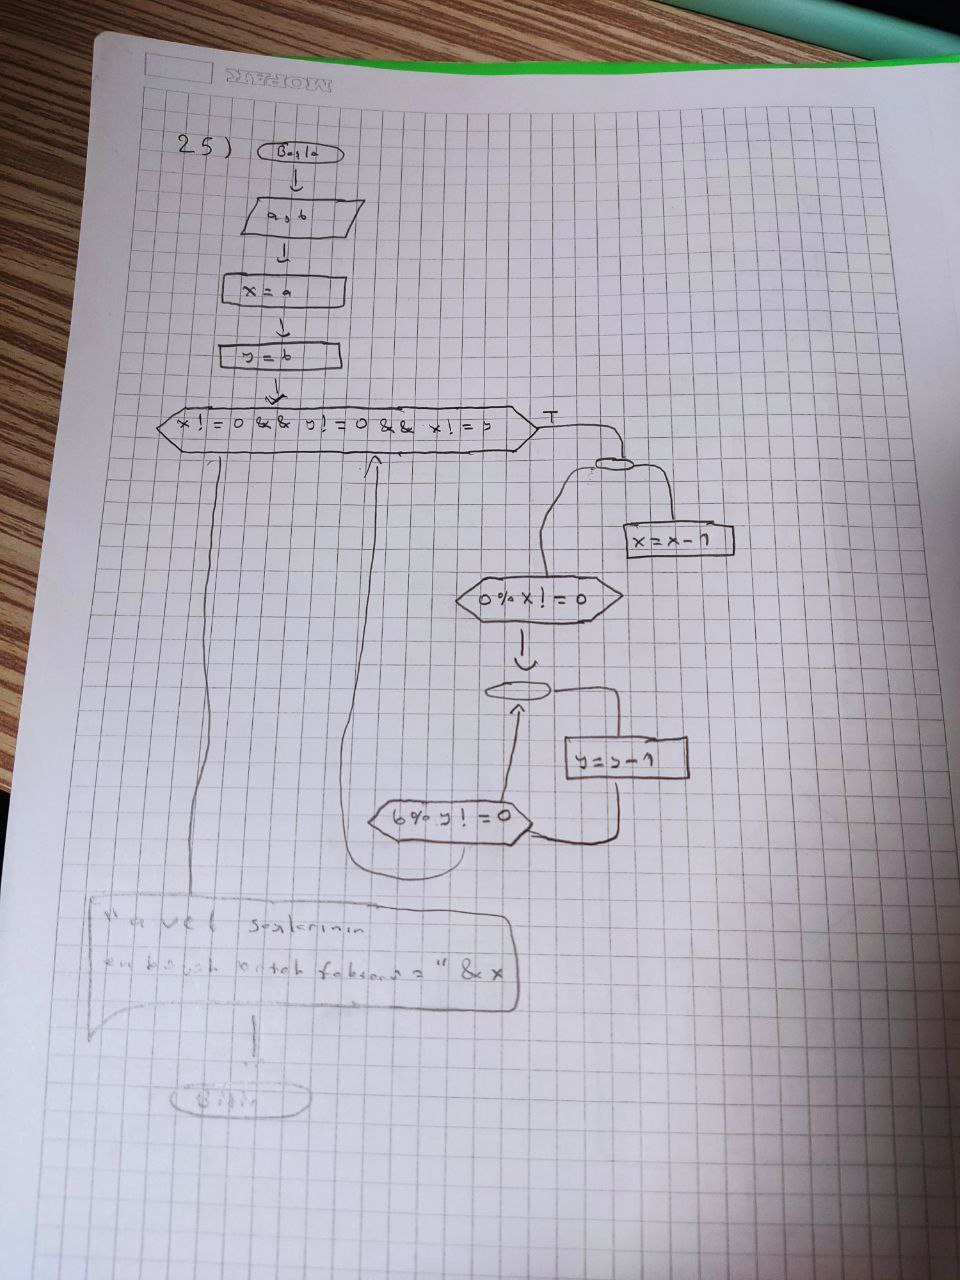 MOPAK
25) Başla
a, b
x = a
y = b
x != 0 && y != 0 && x != y
T
x = x - 1
a % x != 0
y = y - 1
b % y != 0
"a ve b sayılarının
en büyük ortak = " & x
Bitir